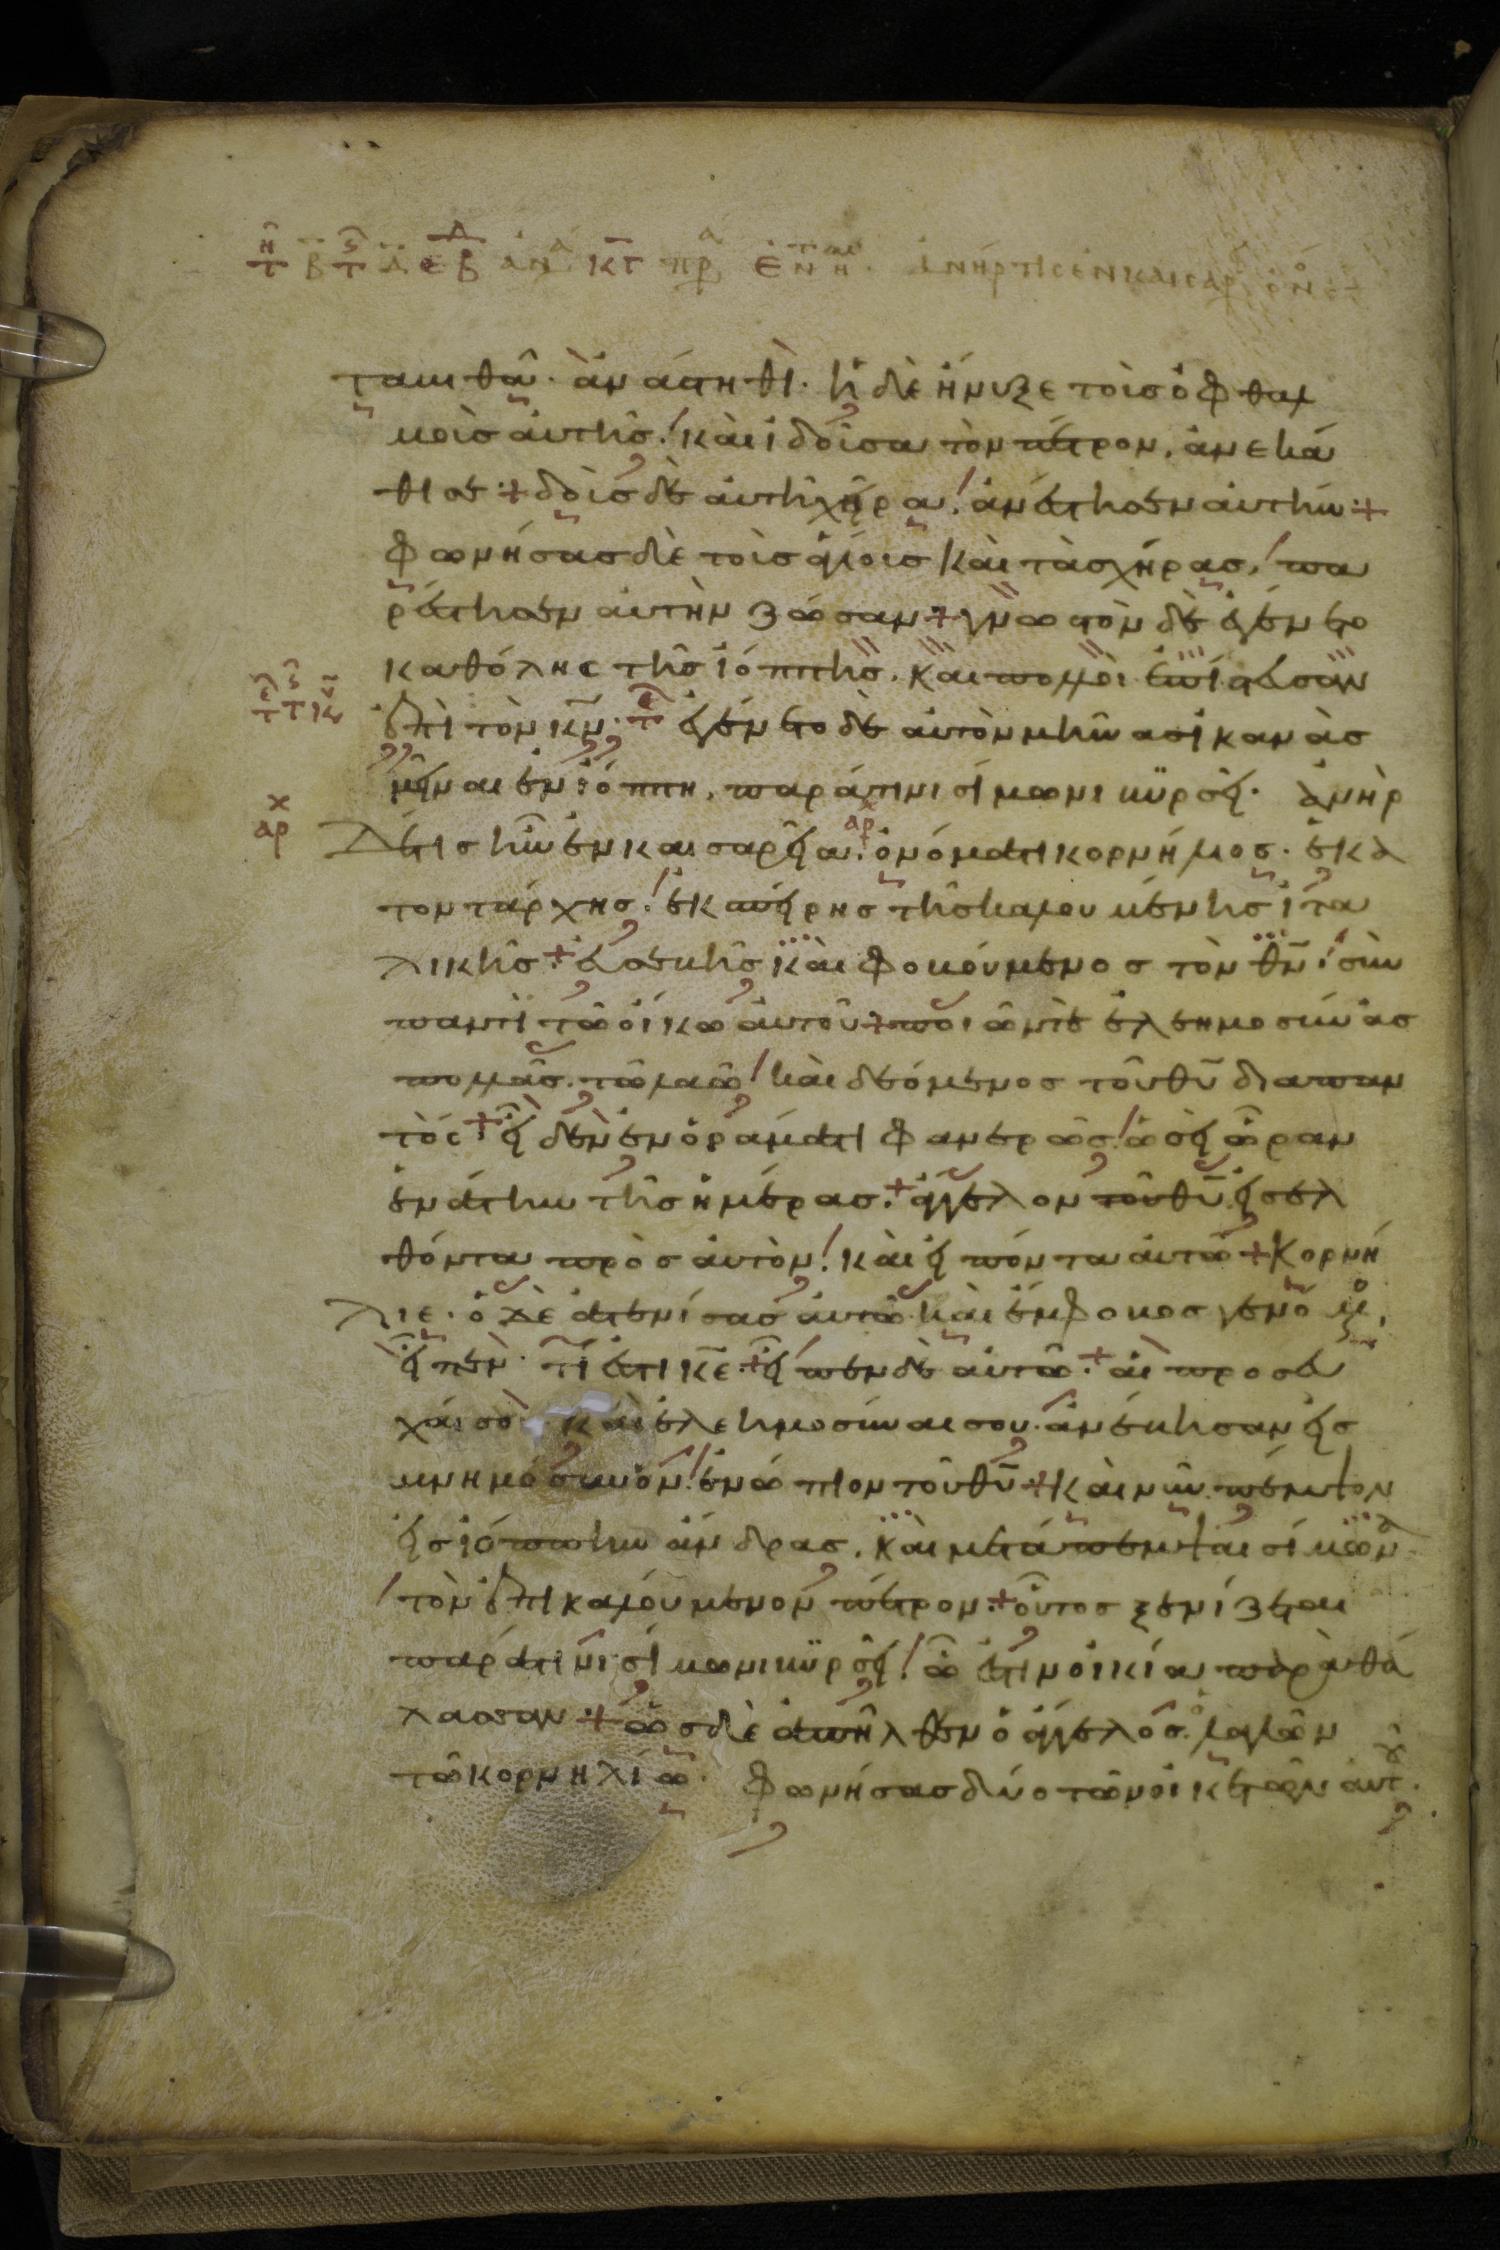 ταμιθα̂· ἀνάστηθι· ἡ δὲ ἤνυξε τοὶσ ὀφθαλ
μοὶσ ἀυτῆσ· κὰι ἰδοῖσα τὸν πέτρον, ἀνεκά
θισε + δοὶσ δὲ ἀυτῆ χῆρα· ἀνέστησεν ἀυτὴν +
φωνήσασ δὲ τοὶσ ἁγίοισ κὰι τὰσ χήρασ, πα
ρέστησεν ἀυτὴν ζῶσαν + γνωστὸν δὲ ἐγένετο
καθόλησ τῆσ ἰόππησ. κὰι πολλοὶ ἐπίστευσαν
ἐπὶ τὸν κ̅ν̅· ἐγένετο δὲ ἀυτὸν μὴν ασ ἱκανὰσ
μεῖναι ἐν ἰόππη, παρά τινι σίμωνι κϋρσεῖ· ἀνὴρ
δέ τισ ἦν ἐν καισαρεῖα· ὀνόματι κορνήλιοσ· ἑκα
τοντάρχησ· ἐκ σπείρησ τῆσ καλουμένησ ἰτα
λικῆσ + ἐυσεκὴσ κὰι φοκούμενοσ τὸν θ̅ν̅· σὺν
παντὶ τῶ ὀίκω ἀυτοῦ + ποιῶν τὲ ἐλεημοσύνασ
πολλὰσ τῶ λαῶ κὰι δεόμενοσ τοῦ θ̅υ̅ διαπαν
τόσ + εἶδεν ἐν ὁράματι φανερῶσ· ὡσεὶ ὧραν
ἐνάτην τῆσ ἡμέρασ + ἄγγελον τοῦ θ̅υ̅ εἰσελ
θόντα πρὸσ ἀυτὸν· κὰι εἰπόντα ἀυτῶ + Κορνή
λιε· ὁ δὲ ἀτενίσασ ἀυτῶ κὰι ἔμφοκοσ γενό μ
εἶπεν· τί ἐστι κ̅ε̅ + εἶπεν δὲ ἀυτῶ + ἁι προσευ
χάι σο κὰι ἐλεημοσύναι σου· ἀνέκησαν εἰσ
μνημόσυνον· ἐνώπιον τοῦ θ̅υ̅ + κὰι νῦν πέμψον
εἰσ ἰόππην ἄνδρασ, κὰι μετάπεμψαι σίμων
τὸν ἐπικαλούμενον πέτρον + οὗτοσ ξενίζεται
παρά τινι σίμωνι κϋρσεῖ· ὧ ἐστιν ὀικία παρὰ θά
λασσαν + ὡσ δὲ ἀπῆλθεν ὁ ἄγγελοσ ὁ λαλῶν
τῶ κορνηλίω· φωνήσασ δύο τῶν ὀικετῶν ἀυτ